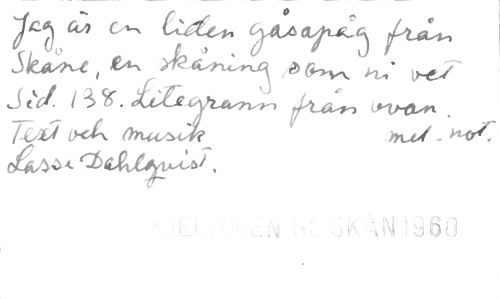 Jag är en liden gåsapåg från
Skåne, en skåning som ni vet
Sid. 138. Litegrann från ovan.
Text och musik mel. not.
Lasse Dahlqvist.
SKÅN 1960